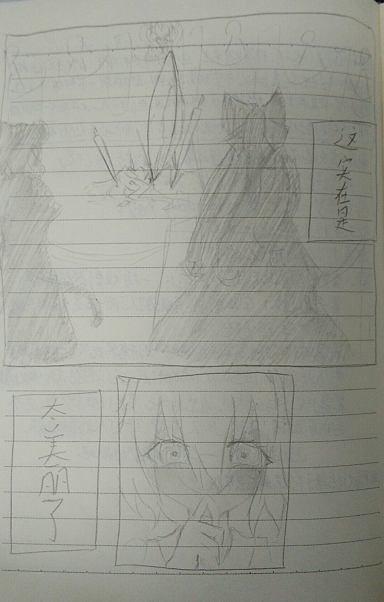 这实在是
太美丽了